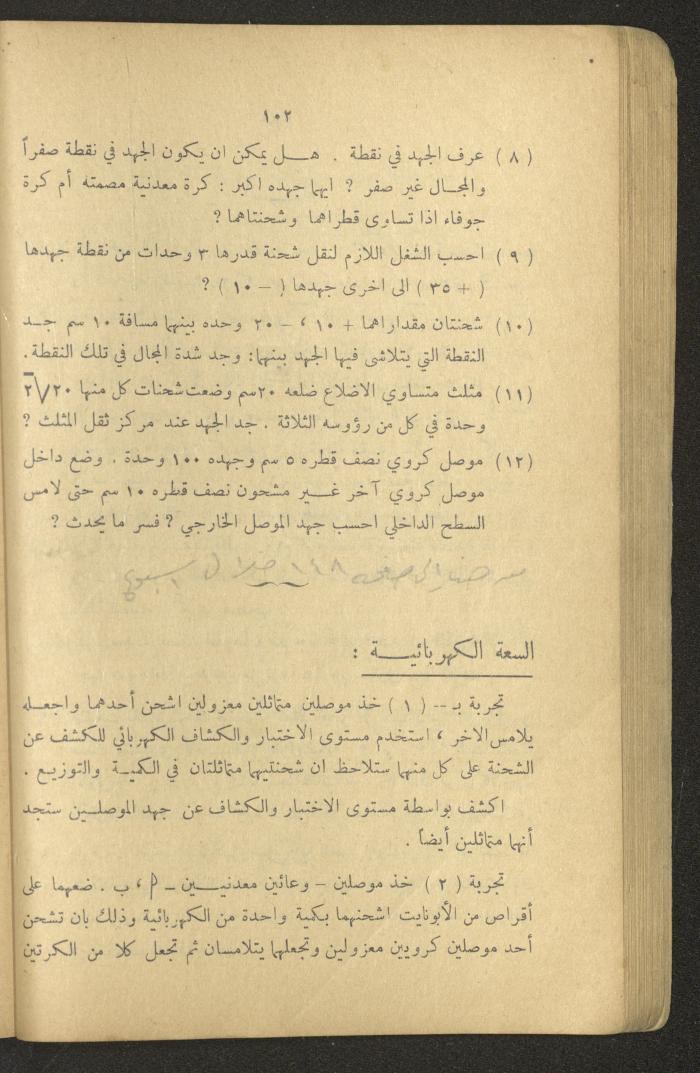 ١٠٢
( ٨ ) عرف الجهد في نقطة . هـــل يمكن ان يكون الجهد في نقطة صفراً
والمجــال غير صفر ? ايهما جهده اكبر : كرة معدنية مصمته أم كرة
جوفاء اذا تساوى قطراهما وشحنتاهما ?
( ٩ ) احسب الشغل اللازم لنقل شحنة قدرها ٣ وحدات من نقطة جهدها
( + ٣٥ ) الى اخرى جهدها ( – ١٠ ) ?
(١٠) شحنتان مقداراهما + ١٠ ، – ٢٠ وحده بينهما مسافة ١٠ سم جــد
النقطة التي يتلاشى فيها الجهد بينهما: وجد شدة المجال في تلك النقطة .
(١١) مثلث متساوي الاضلاع ضلعه ٢٠سم وضعت شحنات كل منها ٢٠√٢
وحدة في كل من رؤوسه الثلاثة . جد الجهد عند مركز ثقل المثلث ?
(١٢) موصل كروي نصف قطره ٥ سم وجهده ١٠٠ وحدة . وضع داخل
موصل كروي آخر غـــير مشحون نصف قطره ١٠ سم حتى لامس
السطح الداخلي احسب جهد الموصل الخارجي ? فسر ما يحدث ?
من هنا الى صفحه ١٤٨ خلال اسبوع
السعة الكهربائيـــة :
تجربة بـ -- ( ١ ) خذ موصلين متماثلين معزولين اشحن أحدهما واجعلـه
يلامس الاخر ، استخدم مستوى الاختبار والكشاف الكهربائي للكشف عن
الشحنة على كل منهما ستلاحظ ان شحنتيهما متماثلتان في الكميـة والتوزيـع .
اكشف بواسطة مستوى الاختبار والكشاف عن جهد الموصلــين ستجد
أنهما متماثلين أيضاً .
تجربة ( ٢ ) خذ موصلين – وعائين معدنيـــين – م ، ب . ضعهما على
أقراص من الأبونايت اشحنهما بكمية واحدة من الكهربائية وذلك بان تشحن
أحد موصلين كرويين معزولين وتجعلهما يتلامسان ثم تجعل كلا من الكرتين